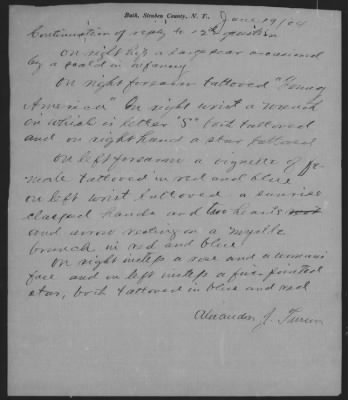 Bath, Steuben County, N. Y. June 19/04
Continuation of reply to 12th question
On right hip a large scar occasioned
by a scald in infancy
On right forearm tattooed "Young
America" On right wrist a wreath
on which is letter "S" both tattooed
and on right hand a star tattooed
On left forearm a vignette of fe-
male tattooed in red and blue
on left wrist tattooed a sunrise
clasped hands and two hearts
and arrow resting on a myrtle
branch in red and blue
On right instep a rose and a womans
face and on left instep a five pointed
star, both tattooed in blue and red
Alexander J.